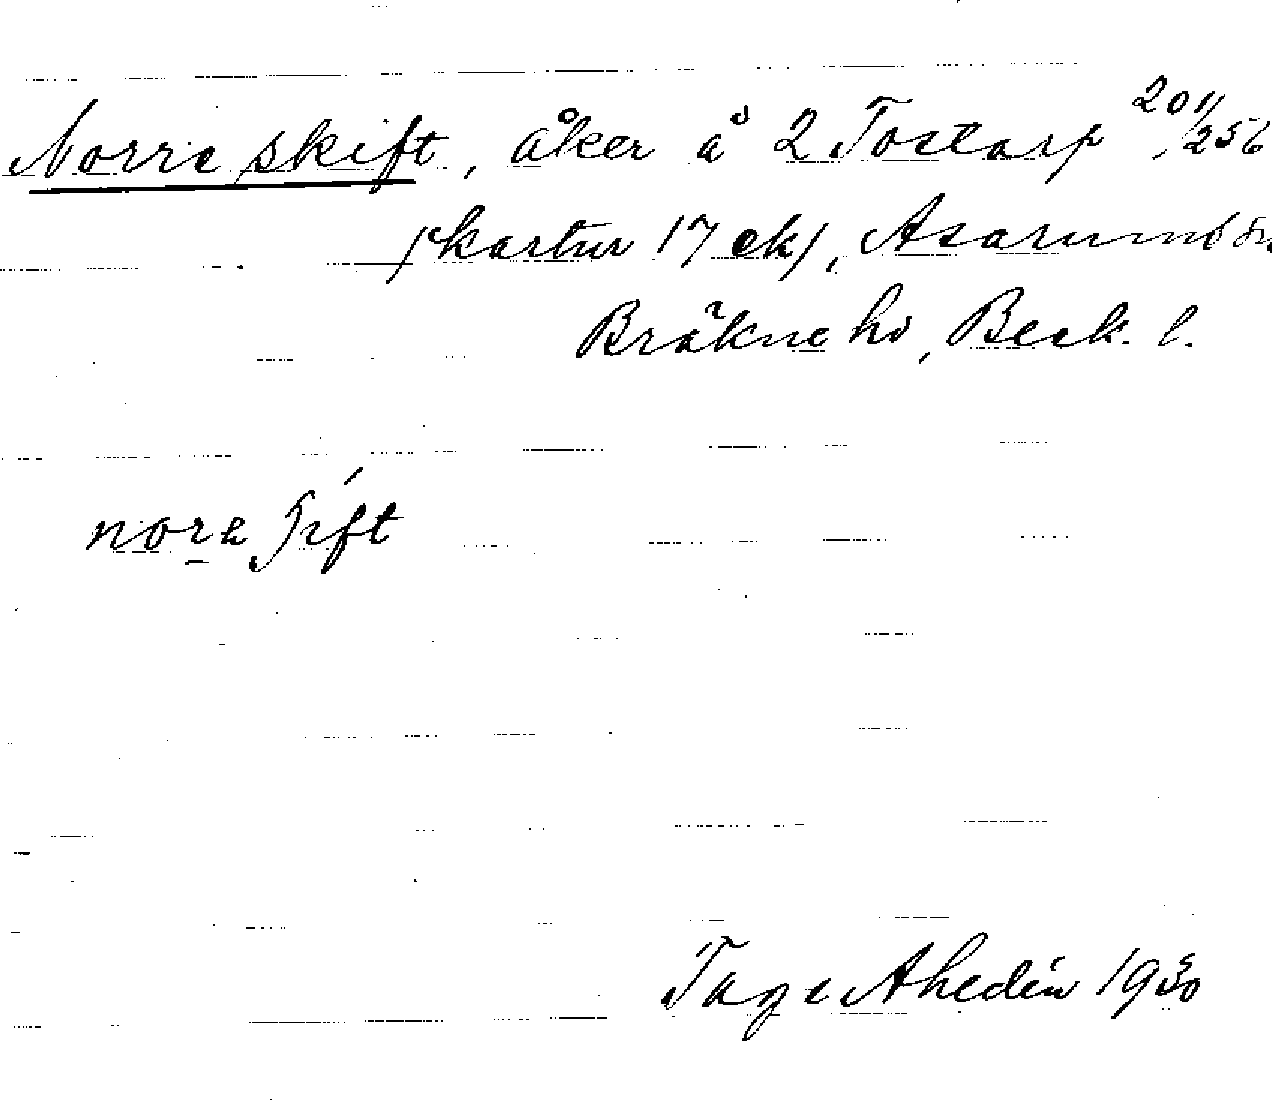 Norre skift, åker å 2 Tostarp 201/256
(kartur 17 ek), Asarums sn
Bräkne hd, Bleck. l.
nora ʃift
Tage Ahedén 1930